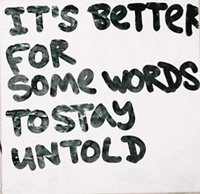 IT'S BETTER
FOR
SOME WORDS
TO STAY
UNTOLD